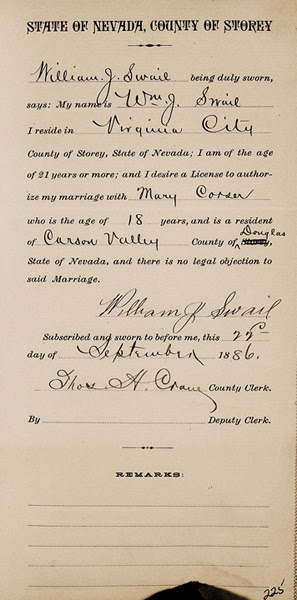 STATE OF NEVADA, COUNTY OF STOREY
William J. Swail being duly sworn,
says: My name is Wm. J. Swail
I reside in Virginia City
County of Storey, State of Nevada; I am of the age
of 21 years or more; and I desire a License to author-
ize my marriage with Mary Corser
who is the age of 18 years, and is a resident
of Carson Valley County of Storey, Douglas
State of Nevada, and there is no legal objection to
said Marriage.
William J. Swail
Subscribed and sworn to before me, this
day of September 1886.
Thos. H. Crane County Clerk.
By Deputy Clerk.
REMARKS:
225